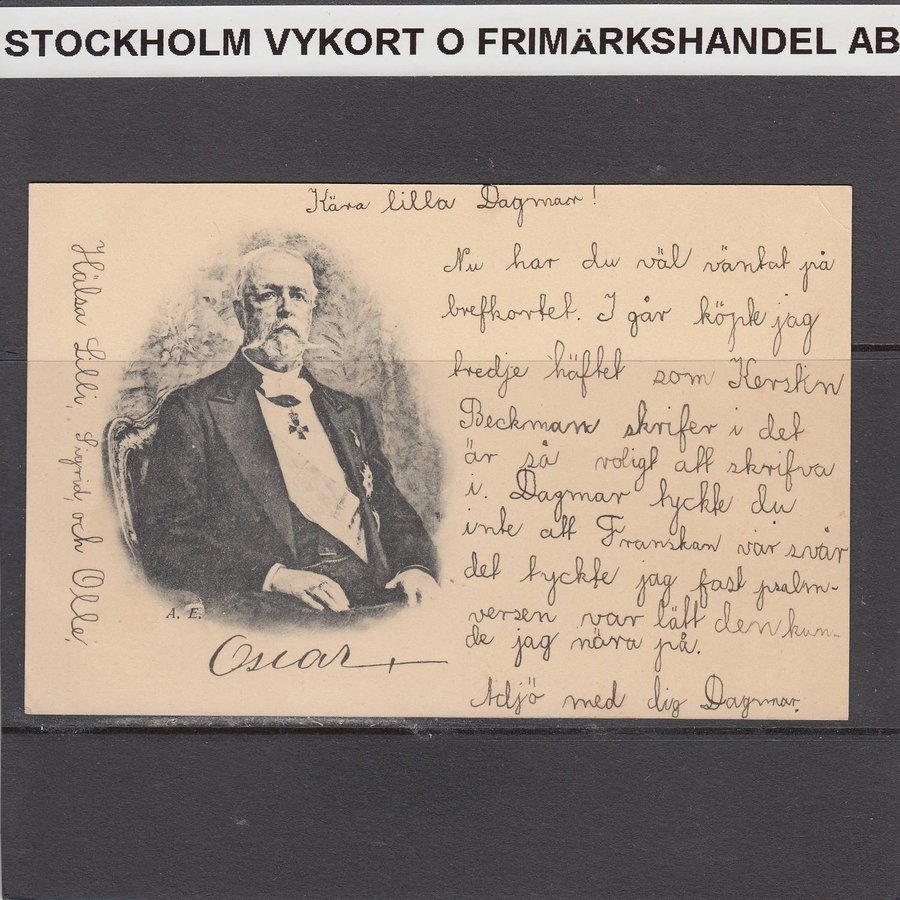 STOCKHOLM VYKORT O FRIMÄRKSHANDEL AB
Kära lilla Dagmar!
Nu har du väl väntat på
brefkortet. I går köpte jag
tredje häftet som Kerstin
Beckman skrifer i det
är så roligt att skrifva
i. Dagmar tyckte du
inte att Franskan var svår
det tyckte jag fast psalm-
versen var lätt den kun-
de jag nära på.
Adjö med dig Dagmar.
Hälsa Lilli, Sigrid, och Olle,
A. E.
Oscar